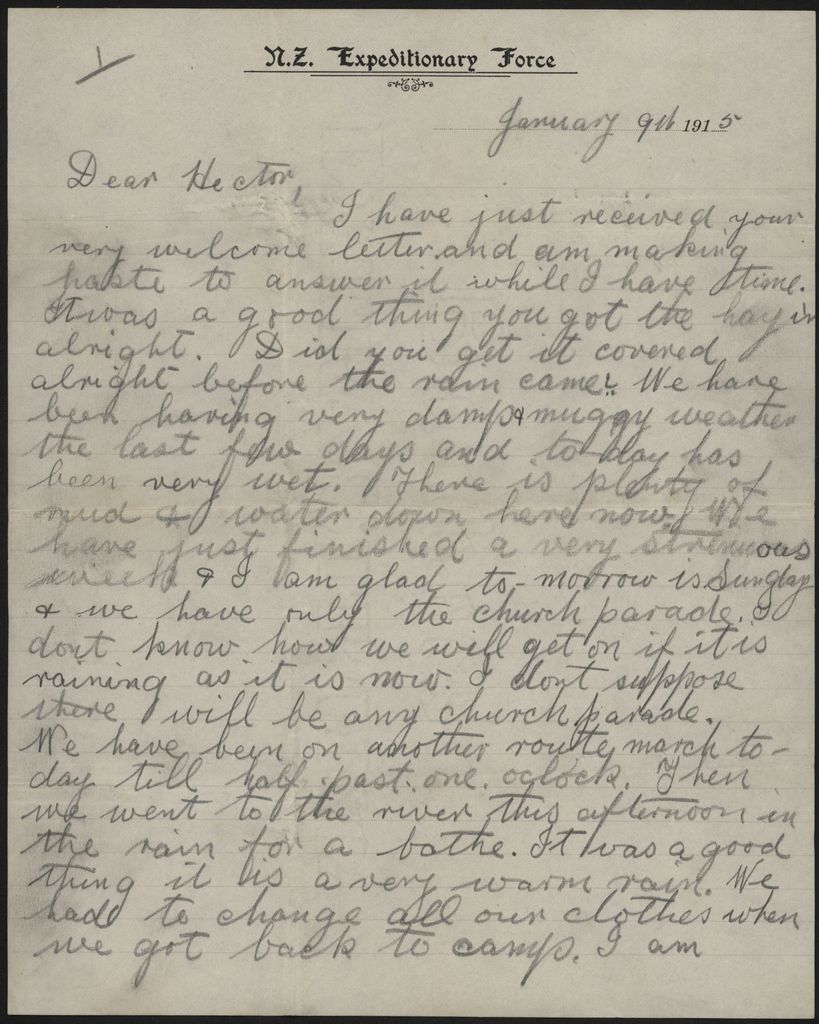 1
N.Z. Expeditionary Force
January 9th 1915
Dear Hector,
I have just received your
very welcome letter and am making
haste to answer it while I have time.
It was a good thing you got the hay in
alright. Did you get it covered
alright before the rain came? We have
been having very damp & muggy weather
the last few days and to-day has
been very wet. There is plenty of
mud & water down here now. We
have just finished a very strenuous
week & I am glad to-morrow is Sunday
& we have only the church parade. I
dont know how we will get on if it is
raining as it is now. I dont suppose
there will be any church parade.
We have been on another route march to-
day till half past one oclock. Then
we went to the river this afternoon in
the rain for a bathe. It was a good
thing it is a very warm rain. We
had to change all our clothes when
we got back to camp. I am